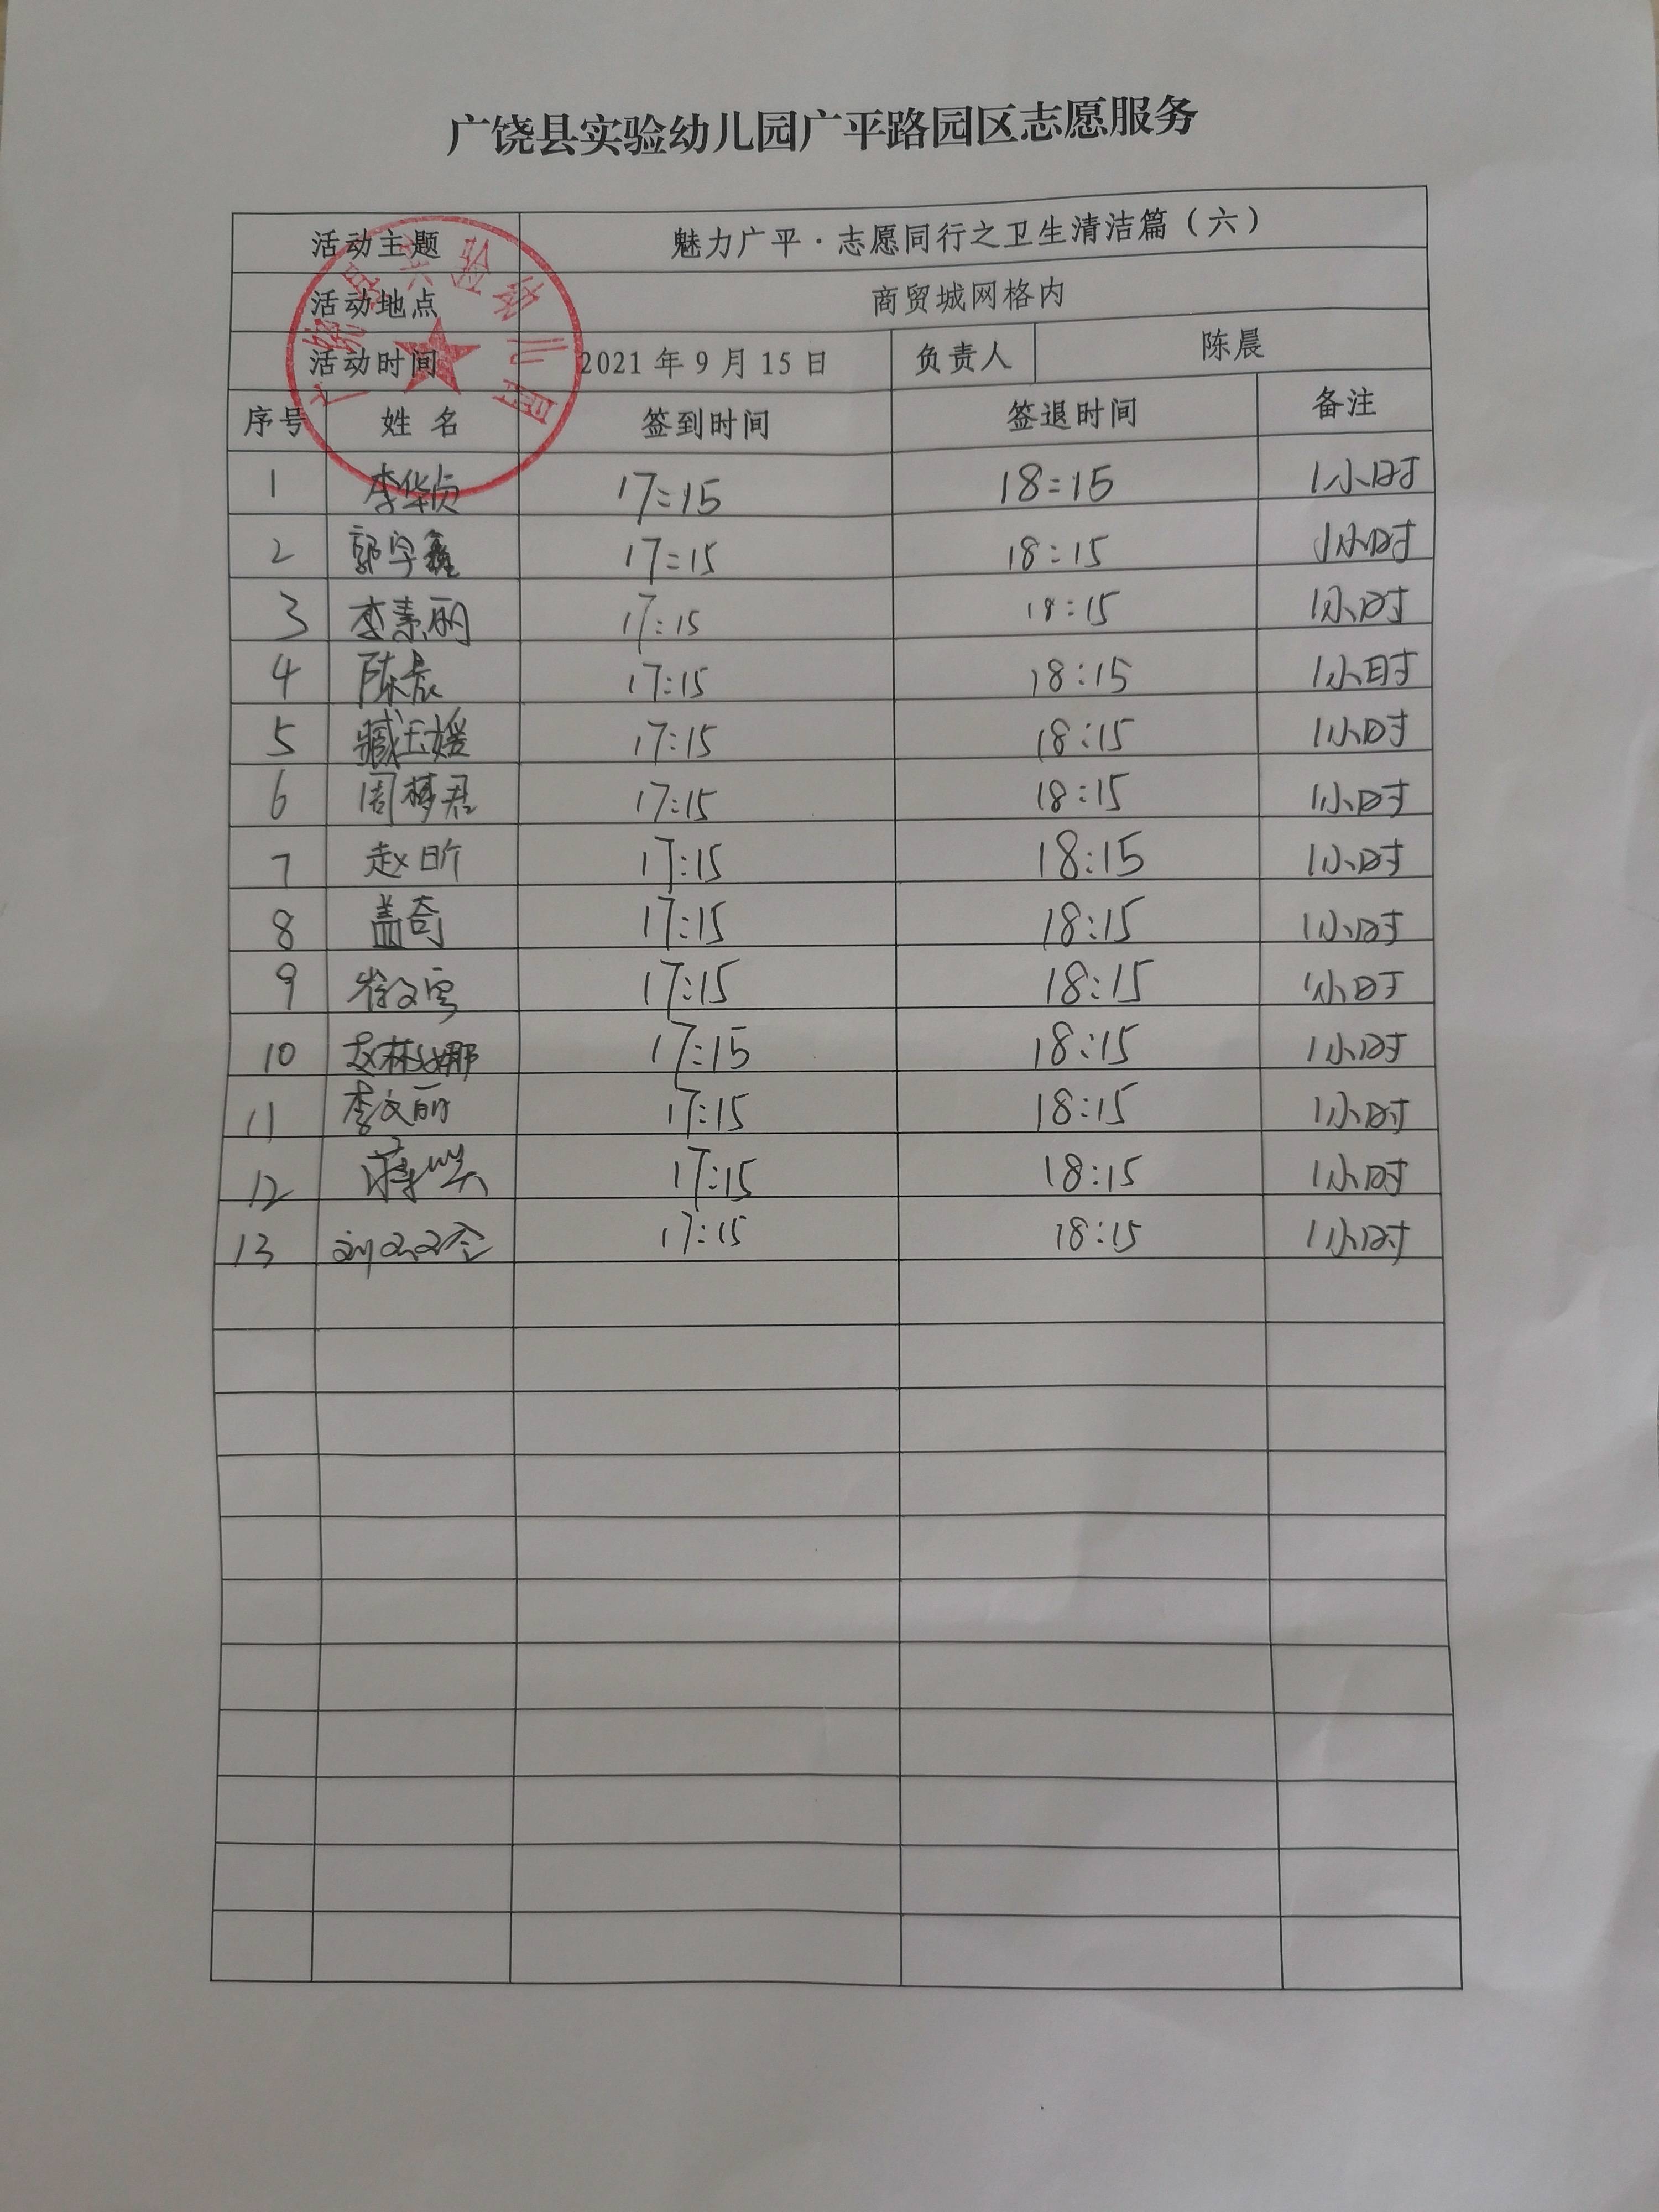 广饶县实验幼儿园广平路园区志愿服务
活动主题 魅力广平·志愿同行之卫生清洁篇（六）
活动地点 商贸城网格内
活动时间 2021年9月15日 负责人 陈晨
广饶县实验幼儿园
序号 姓名 签到时间 签退时间 备注
1 李华贞 17:15 18:15 1小时
2 郭宇鑫 17:15 18:15 1小时
3 李素丽 17:15 18:15 1小时
4 陈晨 17:15 18:15 1小时
5 臧玉媛 17:15 18:15 1小时
6 周梦君 17:15 18:15 1小时
7 赵昕 17:15 18:15 1小时
8 盖奇 17:15 18:15 1小时
9 17:15 18:15 1小时
10 赵林娜 17:15 18:15 1小时
11 李文丽 17:15 18:15 1小时
12 17:15 18:15 1小时
13 17:15 18:15 1小时